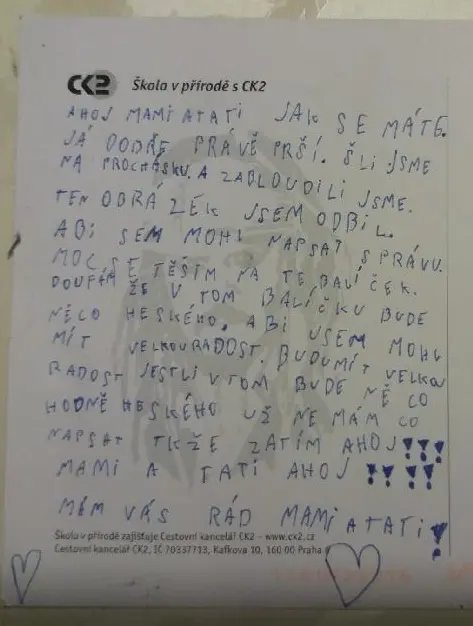 CK2 Škola v přírodě s CK2
AHOJ MAMI A TATI JAK SE MÁTE.
JÁ DODŘE PRÁVĚ PRŠÍ. ŠLI JSME
NA PROCHÁSKU. A ZABLOUDILI JSME.
TEN OBRÁZEK JSEM ODBIL.
ABI SEM MOHL NAPSAT SPRÁVU.
MOC SE TĚŠÍM NA TE BALÍČEK.
DOUFÁM ŽE V TOM BALÍČKU BUDE
NĚCO HESKÉHO, ABI JSEM MOHL
MÍT VELKOU RADOST. BUDU MÍT VELKOU
RADOST JESTLI V TOM BUDE NĚCO
HODNĚ HESKÉHO UŽ NEMÁM CO
NAPSAT TKŽE ZATÍM AHOJ!!!
MAMI A TATI AHOJ!!!!
MÁM VÁS RÁD MAMI A TATI!
Škola v přírodě zajišťuje Cestovní kancelář CK2 – www.ck2.cz
Cestovní kancelář CK2, IČ 70337713, Kafkova 10, 160 00 Praha